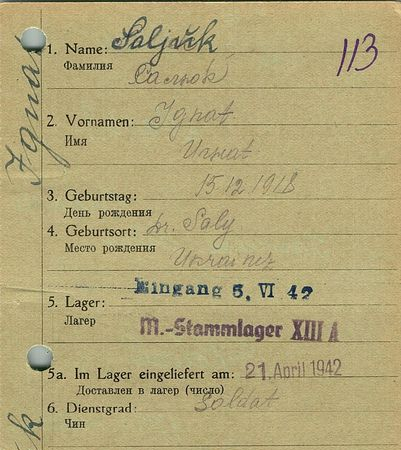 113
1. Name: Saljuk
Фамилия
2. Vornamen: Ignat
Имя Игнат
3. Geburtstag: 15.12.1918
День рождения
4. Geburtsort: Dr. Saly
Место рождения
Eingang 5. VI 42
5. Lager:
Лагер M.-Stammlager XIII A
5a. Im Lager eingeliefert am: 21. April 1942
Доставлен в лагер (число)
6. Dienstgrad: Soldat
Чин
Ignat